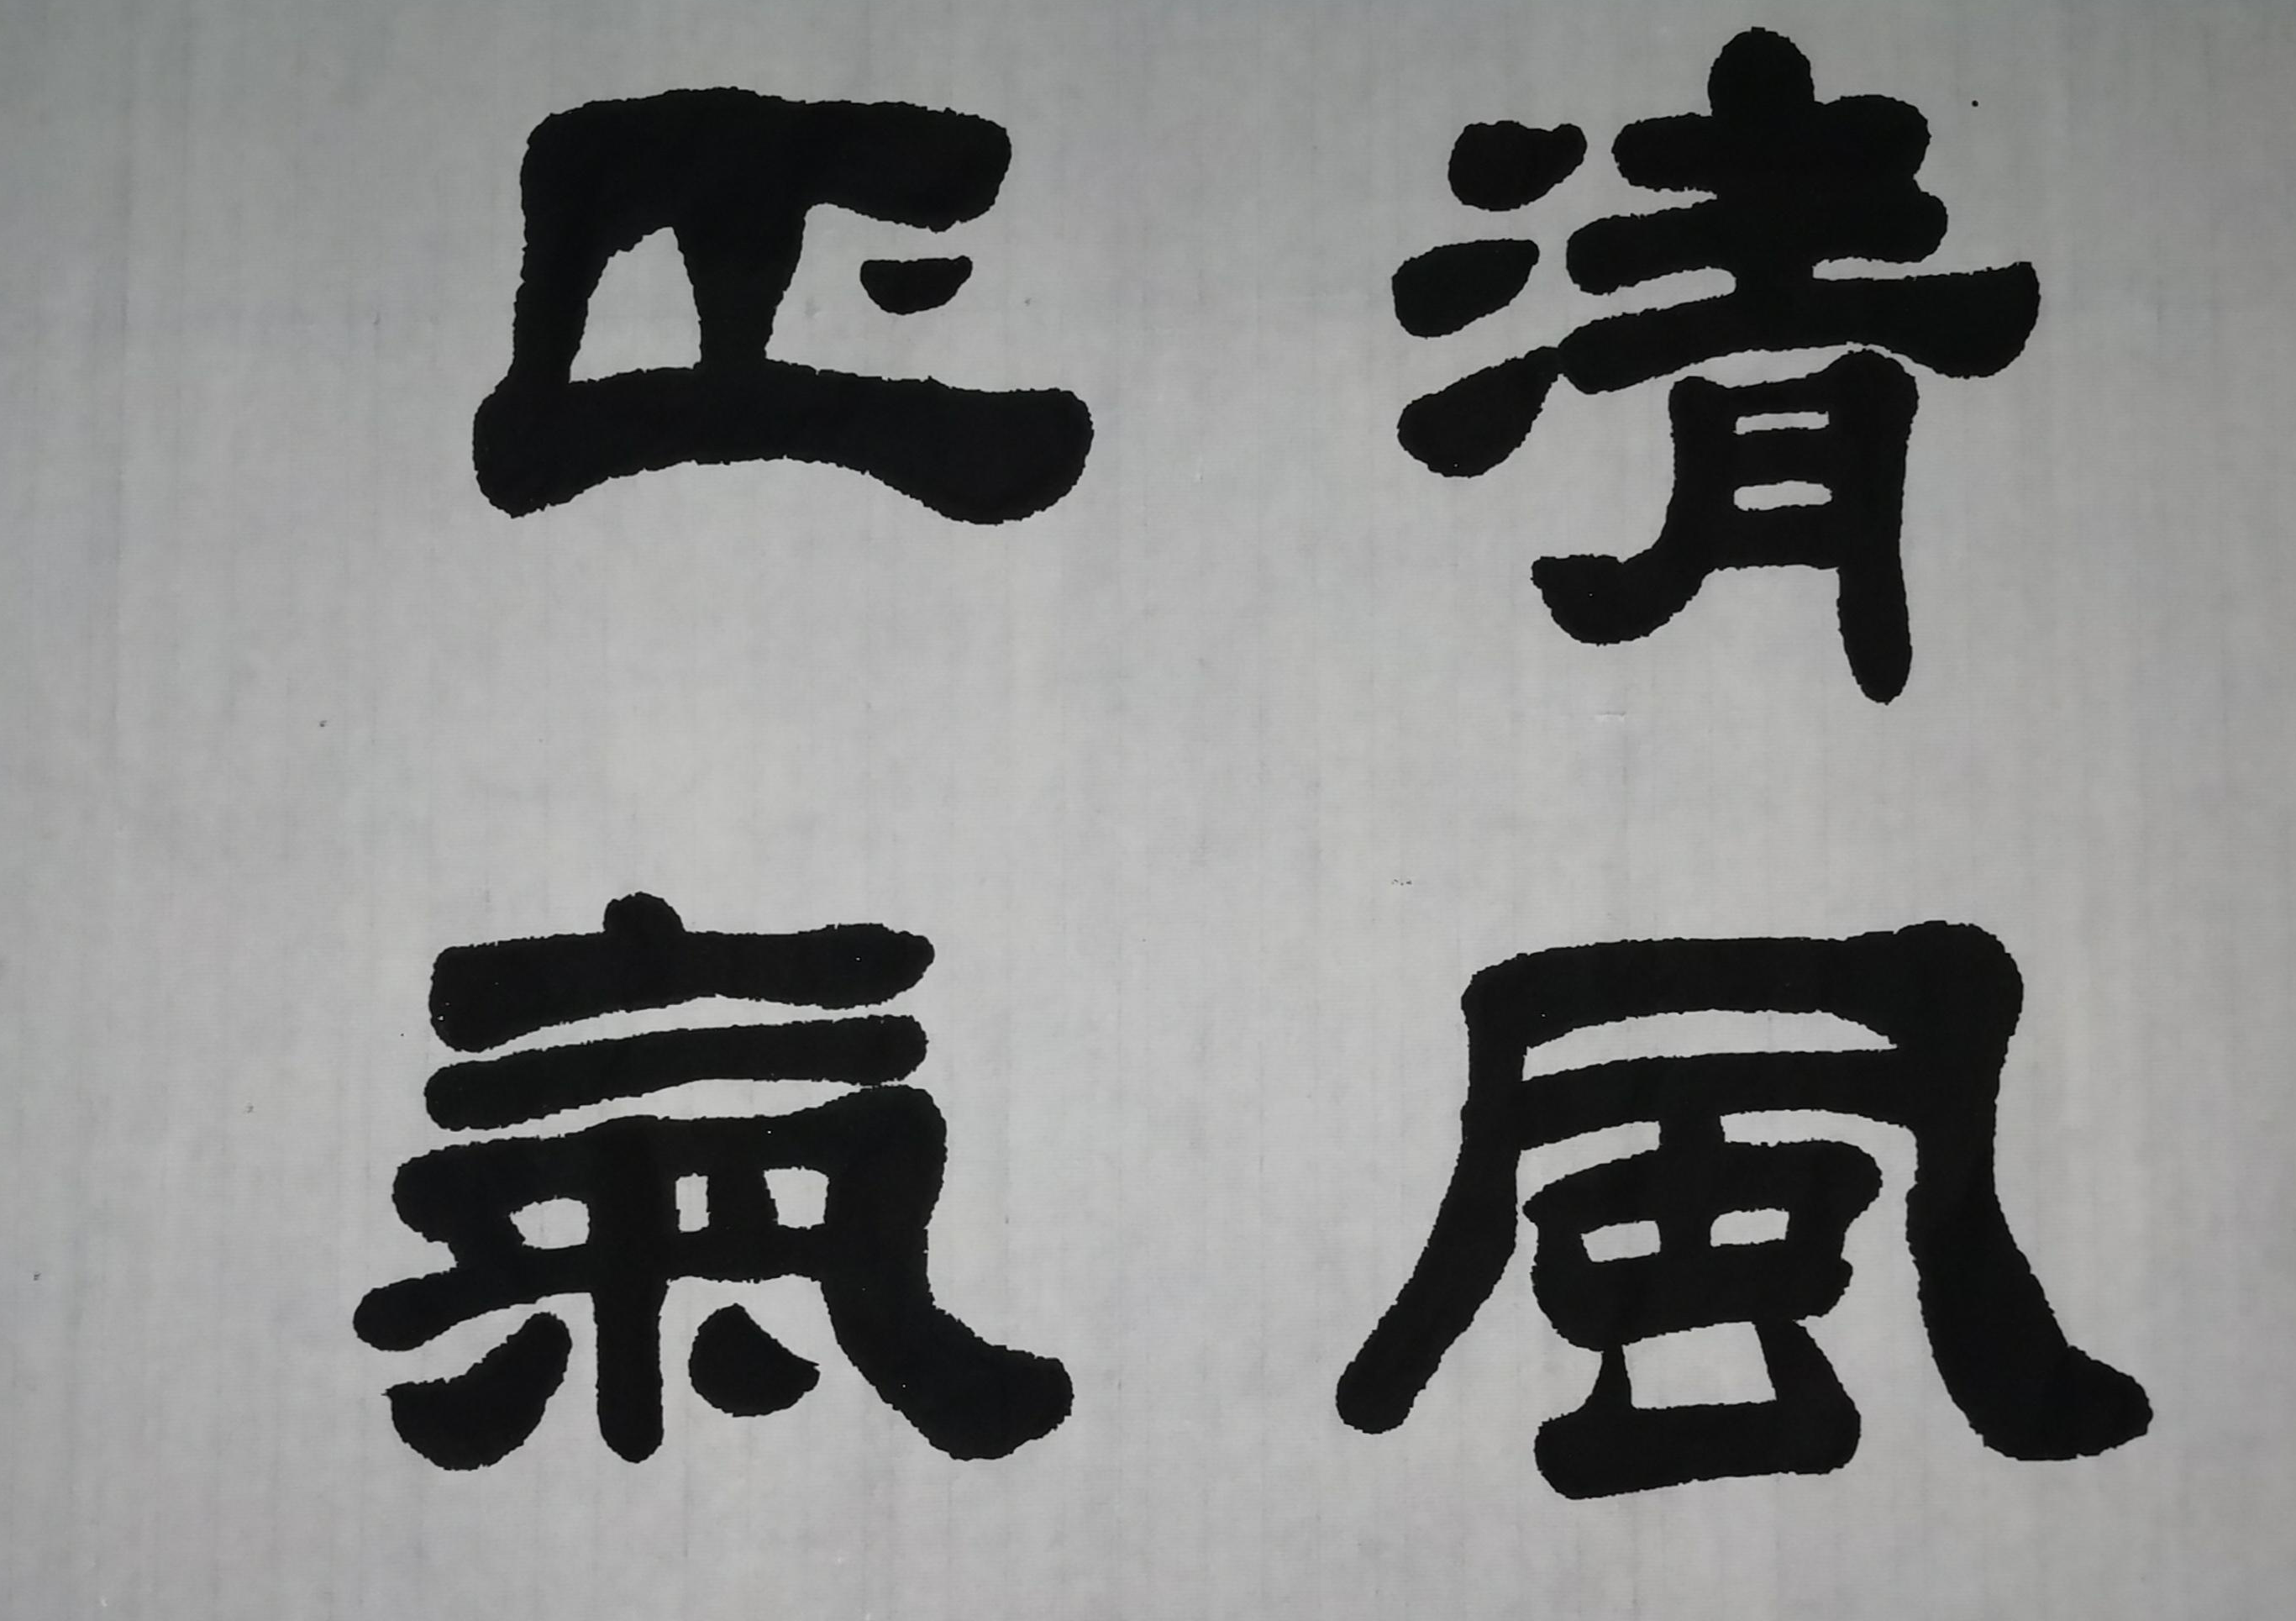 清風
正氣